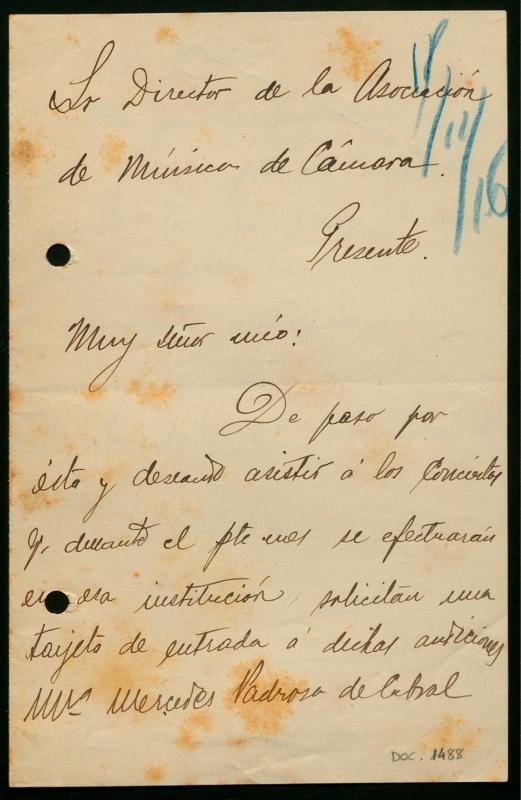 Sr Director de la Asociación
de Música de Cámara.
Presente.
18/11/16
Muy señor mío:
De paso por
ésta y deseando asistir á los Conciertos
q. durante el pte mes se efectuarán
en esa institución, solicitan una
tarjeta de entrada á dichas audiciones
Mª Mercedes Padrosa de Cabral
DOC. 1488